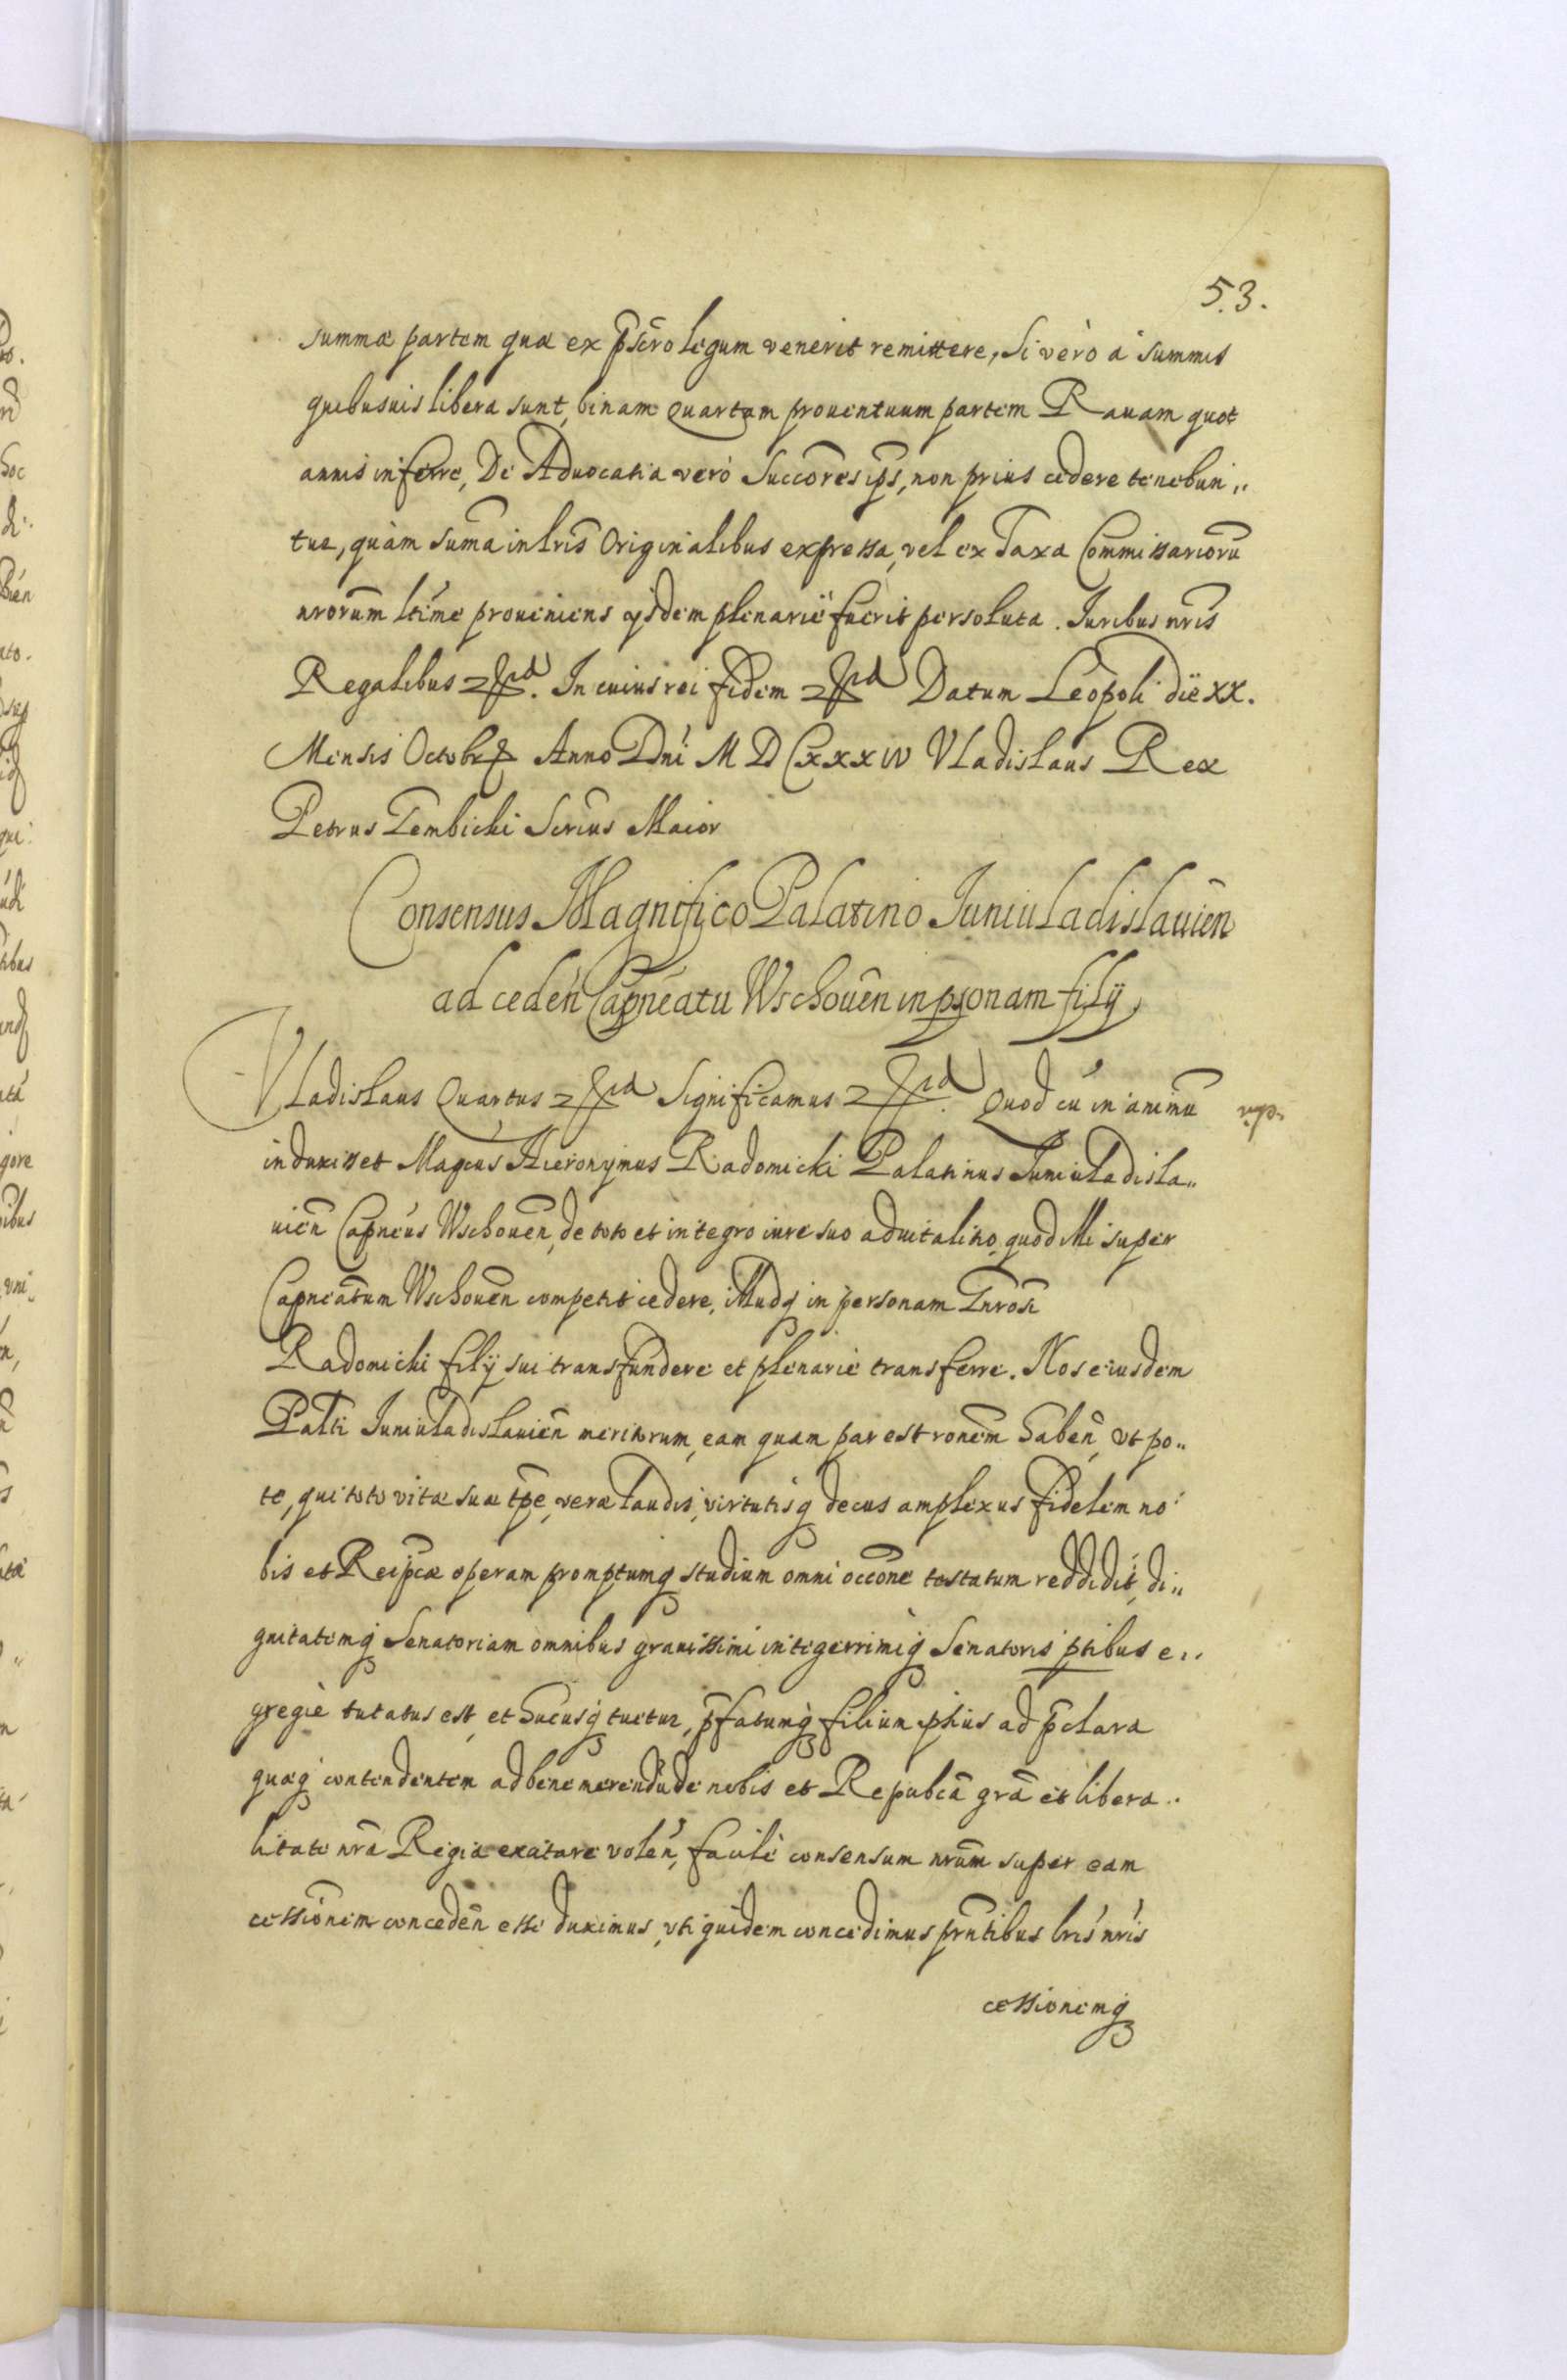 53.
summæ partem quæ ex p̃scr̃o legum venerit remittere, Si verò à summis
quibusuis libera sunt, binam Quartam prouentuum partem Rauam quot
annis inferre, De Aduocatia verò Succores ip̃s, non prius cedere tenebun„
tur, quàm sum̃a in lr̃is Originalibus expressa, vel ex Taxa Commissariorũ
nrõrum ltime proueniens ijsdem plenariè fuerit persoluta. Iuribus nr̃is
Regalibus In cuius rei fidem Datum Leopoli die XX.
Mensis Octobr Anno Dni M D CXXXIV Vladislaus Rex
Petrus Gembicki Secrius Maior
Consensus Magnifico Palatino Iuniuladislauien̄
ad ceden̄ Capneatu Wschouen̄ in psonam filij
Vladislaus Quartus Significamus Quod cũ in animũ
induxisset Magcus Hieronymus Radomicki Palatinus Iuniuladisla„
uien̄ Capneus Wschouen̄, de toto et integro iure suo aduitalitio, quod illi super
Capneatum Wschouen̄ competit cedere, illudq in personam Gnrosi
Radomicki filij sui transfundere et plenariè transferre. Nos eiusdem
Palti Iuniuladislauien̄ meritorum, eam quam par est ronem haben̄, vt po„
te, qui toto vitæ suæ tp̃e, veræ laudis, virtutisq decus amplexus fidelem no
bis et Reipcæ operam promptumq studium omni occone testatum reddidit, di„
gnitatemq Senatoriam omnibus grauissimi integerrimiq Senatoris ptibus e„
gregiè tutatus est, et hucusq tuetur, p̃fatumq filium ipsius ad p̃clara
quæq contendentem ad bene merendũ de nobis et Republcã grã et libera„
litate nrã Regia excitare volen̄, facilè consensum nrũm super eam
cessionem conceden̄ esse duximus, vti quidem concedimus prntibus lris nris
cessionemq